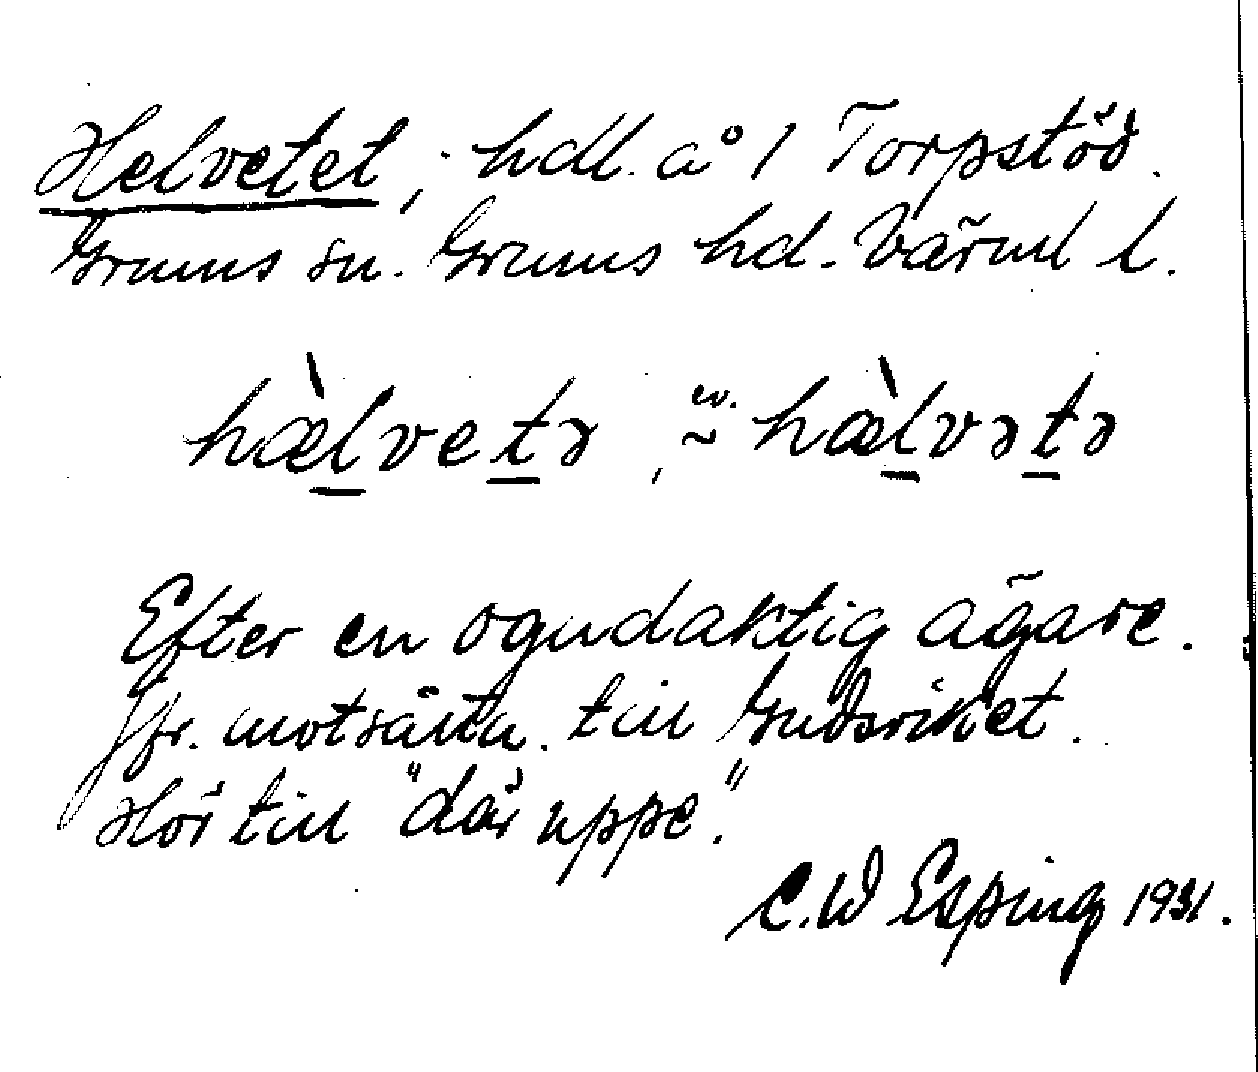 Helvetet, hdl. å 1 Torpstöd.
Grums sn. Grums hd. Värml l.
hæ̀lvetə, ev. ~ hæ̀lvətə
Efter en ogudaktig ägare.
Jfr. motsättn. till Gudsriket.
Hör till "där uppe".
C.W Esping 1931.